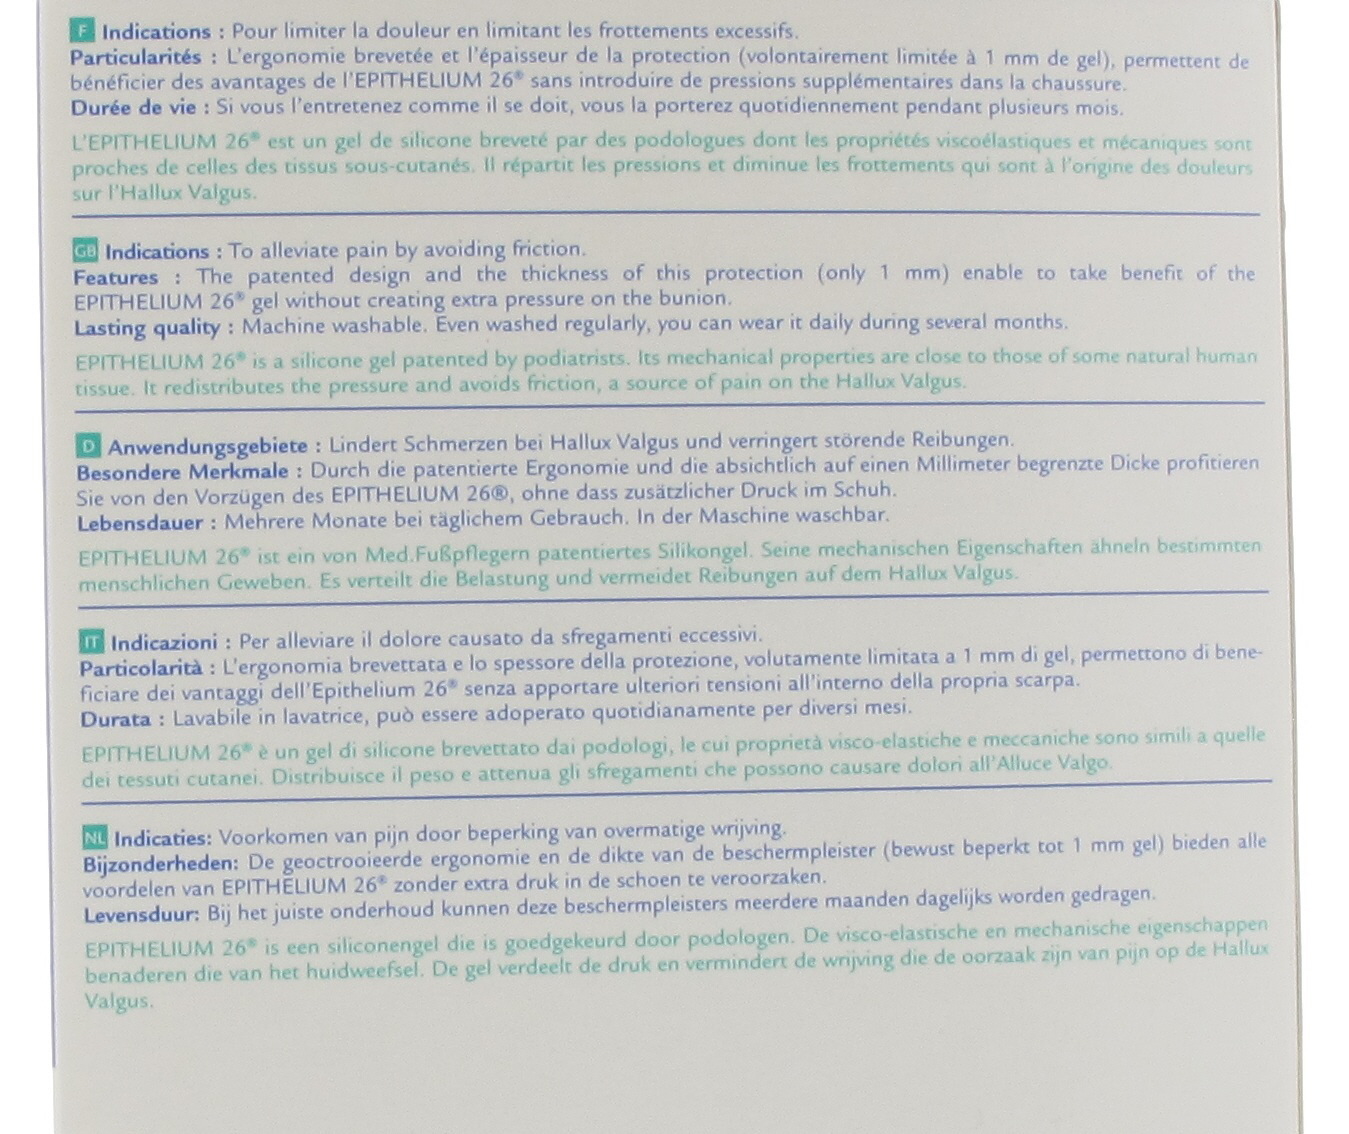 F Indications : Pour limiter la douleur en limitant les frottements excessifs.
Particularités : L'ergonomie brevetée et l'épaisseur de la protection (volontairement limitée à 1 mm de gel), permettent de
bénéficier des avantages de l'EPITHELIUM 26® sans introduire de pressions supplémentaires dans la chaussure.
Durée de vie : Si vous l'entretenez comme il se doit, vous la porterez quotidiennement pendant plusieurs mois.
L'EPITHELIUM 26® est un gel de silicone breveté par des podologues dont les propriétés viscoélastiques et mécaniques sont
proches de celles des tissus sous-cutanés. Il répartit les pressions et diminue les frottements qui sont à l'origine des douleurs
sur l'Hallux Valgus.
GB Indications : To alleviate pain by avoiding friction.
Features : The patented design and the thickness of this protection (only 1 mm) enable to take benefit of the
EPITHELIUM 26® gel without creating extra pressure on the bunion.
Lasting quality : Machine washable. Even washed regularly, you can wear it daily during several months.
EPITHELIUM 26® is a silicone gel patented by podiatrists. Its mechanical properties are close to those of some natural human
tissue. It redistributes the pressure and avoids friction, a source of pain on the Hallux Valgus.
D Anwendungsgebiete : Lindert Schmerzen bei Hallux Valgus und verringert störende Reibungen.
Besondere Merkmale : Durch die patentierte Ergonomie und die absichtlich auf einen Millimeter begrenzte Dicke profitieren
Sie von den Vorzügen des EPITHELIUM 26®, ohne dass zusätzlicher Druck im Schuh.
Lebensdauer : Mehrere Monate bei täglichem Gebrauch. In der Maschine waschbar.
EPITHELIUM 26® ist ein von Med.Fußpflegern patentiertes Silikongel. Seine mechanischen Eigenschaften ähneln bestimmten
menschlichen Geweben. Es verteilt die Belastung und vermeidet Reibungen auf dem Hallux Valgus.
IT Indicazioni : Per alleviare il dolore causato da sfregamenti eccessivi.
Particolarità : L'ergonomia brevettata e lo spessore della protezione, volutamente limitata a 1 mm di gel, permettono di bene-
ficiare dei vantaggi dell'Epithelium 26® senza apportare ulteriori tensioni all'interno della propria scarpa.
Durata : Lavabile in lavatrice, può essere adoperato quotidianamente per diversi mesi.
EPITHELIUM 26® è un gel di silicone brevettato dai podologi, le cui proprietà visco-elastiche e meccaniche sono simili a quelle
dei tessuti cutanei. Distribuisce il peso e attenua gli sfregamenti che possono causare dolori all'Alluce Valgo.
NL Indicaties: Voorkomen van pijn door beperking van overmatige wrijving.
Bijzonderheden: De geoctrooieerde ergonomie en de dikte van de beschermpleister (bewust beperkt tot 1 mm gel) bieden alle
voordelen van EPITHELIUM 26® zonder extra druk in de schoen te veroorzaken.
Levensduur: Bij het juiste onderhoud kunnen deze beschermpleisters meerdere maanden dagelijks worden gedragen.
EPITHELIUM 26® is een siliconengel die is goedgekeurd door podologen. De visco-elastische en mechanische eigenschappen
benaderen die van het huidweefsel. De gel verdeelt de druk en vermindert de wrijving die de oorzaak zijn van pijn op de Hallux
Valgus.